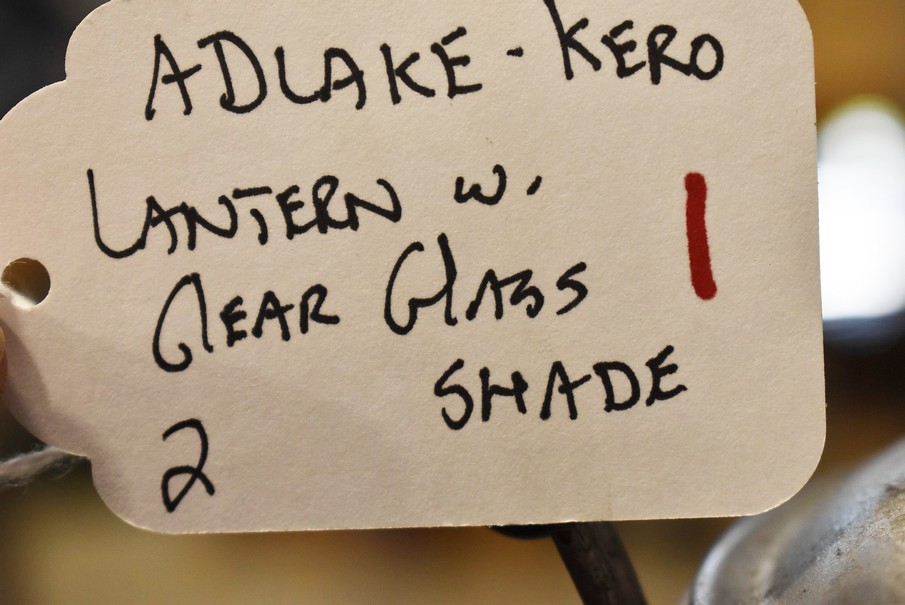 ADLAKE-KERO
LANTERN W.
ClEAR GlASS
SHADE
2